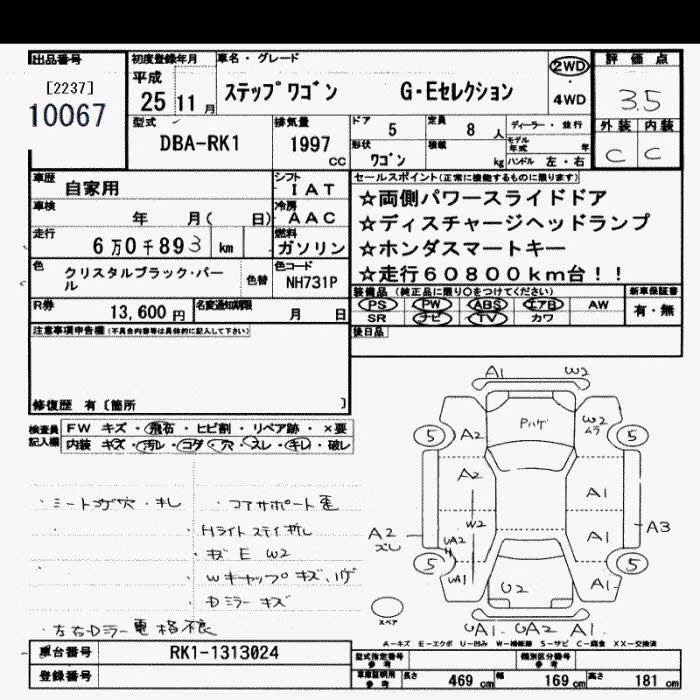 出品番号 初度登録年月 車名・グレード 評価点
[2237] 平成 25 11月 ステップワゴン G・Eセレクション 2WD・4WD 3.5
10067
型式 DBA-RK1 排気量 1997 CC ドア 5 定員 8 人 ディーラー・並行 外装 内装
形状 ワゴン 積載 kg モデル年式 年 ハンドル 左・右 C C
車歴 自家用 シフト IAT セールスポイント(正常に機能するものに限ります)
車検 年 月( 日) 冷房 AAC ☆両側パワースライドドア
☆ディスチャージヘッドランプ
走行 6万0千893 km 燃料 ガソリン ☆ホンダスマートキー
☆走行60800km台!!
色 クリスタルブラック・パール 色替 色コード NH731P
装備品(純正品に限り○をつけてください) 新車保証書
R券 13,600円 名変通知期限 月 日 PS PW ABS エアB AW 有・無
SR ナビ TV カワ
注意事項申告欄(不具合内容等は具体的に記入して下さい) 後日品
修復歴 有〔箇所 〕
A1 W2
検査員記入欄 FW キズ・飛石・ヒビ割・リペア跡・×要
内装 キズ・汚レ・コゲ・穴・スレ・キレ・破レ
Pハゲ
5 A2 W2 ムラ 5
A2 A1
・シートコゲ穴・キレ ・コアサポート歪
・Hライトステイ折レ
A2 ズレ W2 A1 A3
・キズ E W2
UA2
5 5
・Wキャップキズ、ハゲ UA1 U2 A1
・Dミラーキズ
スペア
・左右Dミラー電格不良
UA1 UA2 A1
A-キズ E-エクボ U-凹み W-補修跡 S-サビ C-腐食 XX-交換済
車台番号 RK1-1313024 型式指定番号 参考 類別区分番号 参考
登録番号 車庫証明用 参考 長さ 469 cm 幅 169 cm 高さ 181 cm